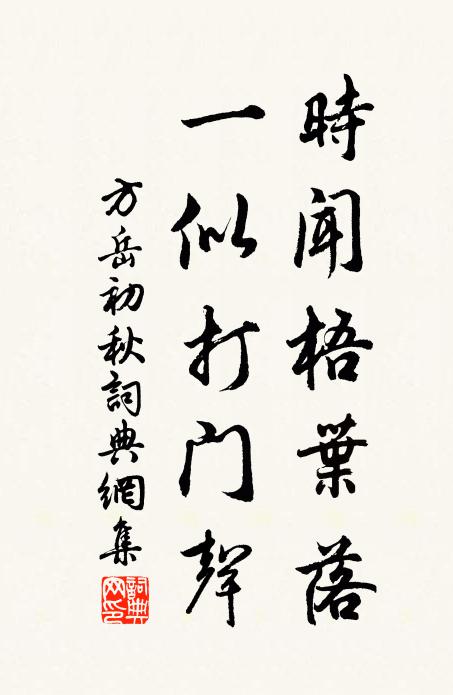 時聞梧葉落
一似打門聲
方岳初秋詞典網集
詞典网印